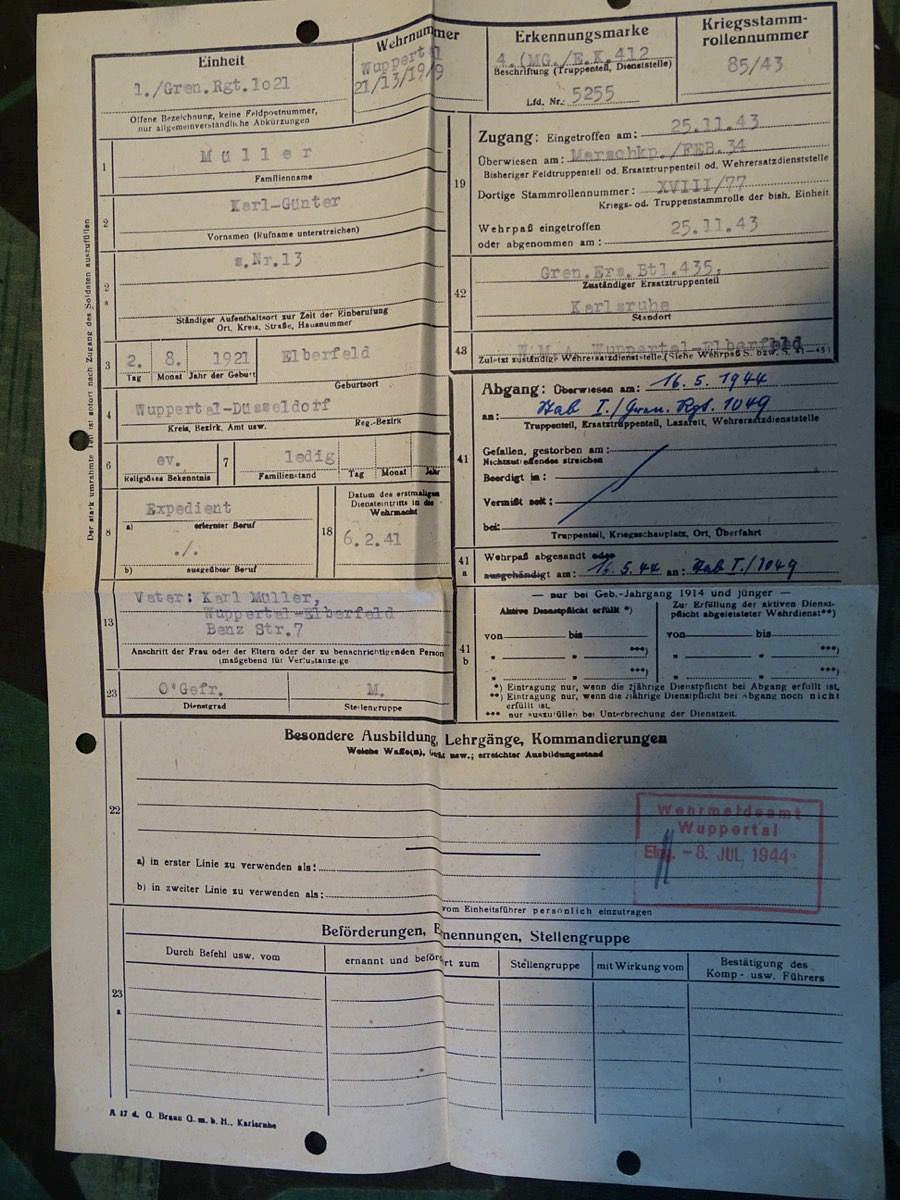 Einheit
1./Gren.Rgt.1o21
Offene Bezeichnung, keine Feldpostnummer,
nur allgemeinverständliche Abkürzungen
Wehrnummer
Wuppertal
21/13/19/9
Erkennungsmarke
4.(MG./E.K.412
Beschriftung (Truppenteil, Dienststelle)
Lfd. Nr.: 5255
Kriegsstamm-
rollennummer
85/43
Der stark umrahmte Teil ist sofort nach Zugang des Soldaten auszufüllen
1
Müller
Familienname
2
Karl-Günter
Vornamen (Rufname unterstreichen)
2
a
s.Nr.13
Ständiger Aufenthaltsort zur Zeit der Einberufung
Ort, Kreis, Straße, Hausnummer
3
2. 8. 1921 Elberfeld
Tag Monat Jahr der Geburt Geburtsort
4
Wuppertal-Düsseldorf
Kreis, Bezirk, Amt usw. Reg.-Bezirk
6
ev.
Religiöses Bekenntnis
7
ledig
Familienstand Tag Monat Jahr
8
Expedient
a) erlernter Beruf
./.
b) ausgeübter Beruf
18
Datum des erstmaligen
Diensteintritts in die
Wehrmacht
6.2.41
13
Vater: Karl Müller,
Wuppertal-Elberfeld
Benz Str.7
Anschrift der Frau oder der Eltern oder der zu benachrichtigenden Person
(maßgebend für Verlustanzeige
23
O'Gefr. M.
Dienstgrad Stellengruppe
19
Zugang: Eingetroffen am: 25.11.43
Überwiesen am: Marschkp./FEB.34
Bisheriger Feldtruppenteil od. Ersatztruppenteil od. Wehrersatzdienststelle
Dortige Stammrollennummer: XVIII/77
Kriegs- od. Truppenstammrolle der bish. Einheit
Wehrpaß eingetroffen
oder abgenommen am: 25.11.43
42
Gren.Ers.Btl.435,
Zuständiger Ersatztruppenteil
Karlsruhe
Standort
43
W.M.A. Wuppertal-Elberfeld
Zuletzt zuständige Wehrersatzdienststelle (Siehe Wehrpaß S. bzw. S. 41—45)
41
Abgang: Überwiesen am: 16. 5. 1944
an: Stab I./Gren. Rgt. 1049
Truppenteil, Ersatztruppenteil, Lazarett, Wehrersatzdienststelle
Gefallen, gestorben am:
Nichtzutreffendes streichen
Beerdigt in:
Vermißt seit:
bei:
Truppenteil, Kriegsschauplatz, Ort, Überfahrt
41
a
Wehrpaß abgesandt oder
ausgehändigt am: 16.5.44 an: Stab I./1049
41
b
— nur bei Geb.-Jahrgang 1914 und jünger —
Aktive Dienstpflicht erfüllt *)
von bis
" " ***)
" " ***)
Zur Erfüllung der aktiven Dienst-
pflicht abgeleisteter Wehrdienst**)
von bis
" " ***)
" " ***)
*) Eintragung nur, wenn die 2jährige Dienstpflicht bei Abgang erfüllt ist,
**) Eintragung nur, wenn die 2jährige Dienstpflicht bei Abgang noch nicht
erfüllt ist,
*** nur auszufüllen bei Unterbrechung der Dienstzeit.
Besondere Ausbildung, Lehrgänge, Kommandierungen
Welche Waffe(n), Gerät usw.; erreichter Ausbildungsstand
22
a) in erster Linie zu verwenden als:
b) in zweiter Linie zu verwenden als:
vom Einheitsführer persönlich einzutragen
Wehrmeldeamt
Wuppertal
Eing. - 8. JUL. 1944
Beförderungen, Ernennungen, Stellengruppe
23
a
Durch Befehl usw. vom
ernannt und befördert zum
Stellengruppe
mit Wirkung vom
Bestätigung des
Komp- usw. Führers
A 17 d. G. Braun G. m. b. H., Karlsruhe